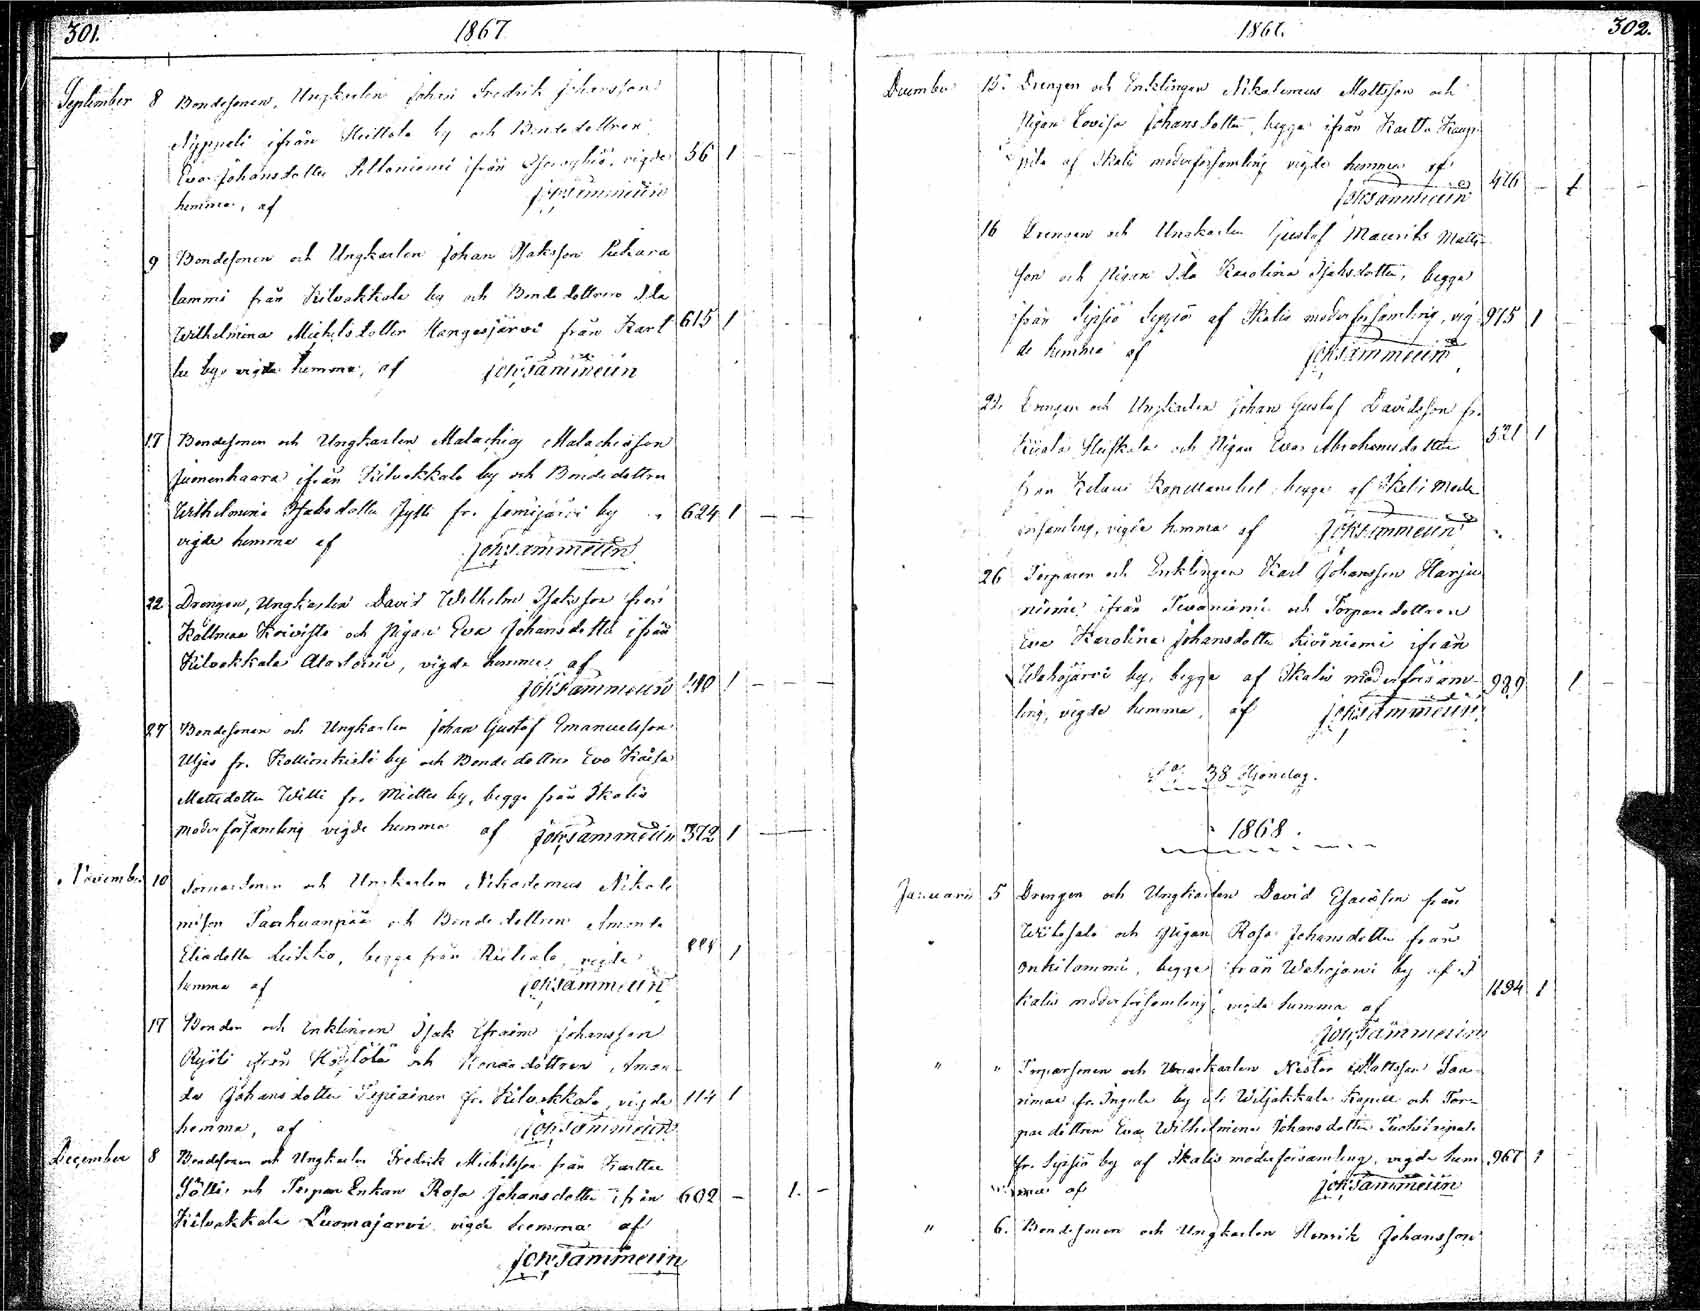 301.
1867
September 8 Bondesonen, Ungkarlen Johan Fredrik Johansson
Nyppeli ifrån Heittola by och Bondedottren
Eva Johansdotter Peltoniemi ifrån vigde 56 1
hemma, af Joh: Tammelin
9 Bondesonen och Ungkarlen Johan Isaksson Puhara
lammi från Kilvakkala by och Bondedottren Ida
Wilhelmina Michelsdotter Kangasjärvi från Kart 615 1
tu by, vigde hemma, af Joh: Tammelin
17 Bondesonen och Ungkarlen Malachias Malachiasson
Juonenhaara ifrån Kilvakkala by och Bondedottren
Wilhelmina Isaksdotter Jytti fr. Jämijärvi by 624 1
vigde hemma af Joh: Tammelin
22 Drängen, Ungkarlen David Wilhelm Isaksson från
Kallmaa Koivisto och Pigan Eva Johansdotter ifrån
Kilvakkala Alastoinen, vigde hemma af
Joh: Tammelin 1
27 Bondesonen och Ungkarlen Johan Gustaf Emanuelsson
Uljas fr. Kallionkieli by och Bondedottren Eva Kaisa
Mattsdotter Willi fr. Miettu by, begge från Ikalis
moderförsamling vigde hemma af Joh: Tammelin 372 1
November 10 och Ungkarlen Nikodemus Nikode
musson Taarhuanpää och Bondedottren Amanda
Eliadotter Leikko, begge från vigde 1
hemma af Joh: Tammelin
17 Bonden och Enklingen Isak Efraim Johansson
Röyli ifrån Höytölä och Bondedottren Aman
da Johansdotter fr. Kilvakkala, vigde 114 1
hemma, af Joh: Tammelin
December 8 Bondesonen och Ungkarlen Fredrik Michelsson från Karttu
och Torpare Enkan Rosa Johansdotter ifrån 602 – 1. –
Kilvakkala Luomajärvi vigde hemma af
Joh: Tammelin
1867.
302.
December 15. Drängen och Enklingen Nikodemus Mattsson och
Pigan Lovisa Johansdotter, begge ifrån Karttu Kaup
pila af Ikalis moderförsamling vigde hemma af
Joh: Tammelin 1
16 Drängen och Ungkarlen Gustaf Maurits Matts
son och Pigan Ida Karolina Isaksdotter, begge
ifrån Sipsiö Seppä af Ikalis moderförsamling, vig 975 1
de hemma af Joh: Tammelin
Drängen och Ungkarlen Johan Gustaf Davidsson fr.
och Pigan Eva Abrahamsdotter 521 1
från Kapellanebol, begge af Ikalis Moder
församling, vigde hemma af Joh: Tammelin
26 Torparen och Enklingen Karl Johansson Harju
niemi ifrån Tevaniemi och Torparedottren
Eva Karolina Johansdotter Kiviniemi ifrån
Wahojärvi by, begge af Ikalis moderförsam– 989 1
ling, vigde hemma, af Joh: Tammelin
38 Hjonelag.
1868.
Januarii 5 Drängen och Ungkarlen David Esaiasson från
Wiitasalo och Pigan Rosa Johansdotter från
Onkilammi, begge från Wahojärvi by af I
kalis moderförsamling, vigde hemma af 1194 1
Joh: Tammelin
" " Torparsonen och Ungkarlen Nestor Mattsson Saa
rimaa fr. Ingula by uti Wiljakkala Kapell och Tor–
paredottren Eva Wilhelmina Johansdotter
fr. Sipsiö by af Ikalis moderförsamling, vigde hem 967 1
ma af Joh: Tammelin
" 6. Bondesonen och Ungkarlen Henrik Johansson